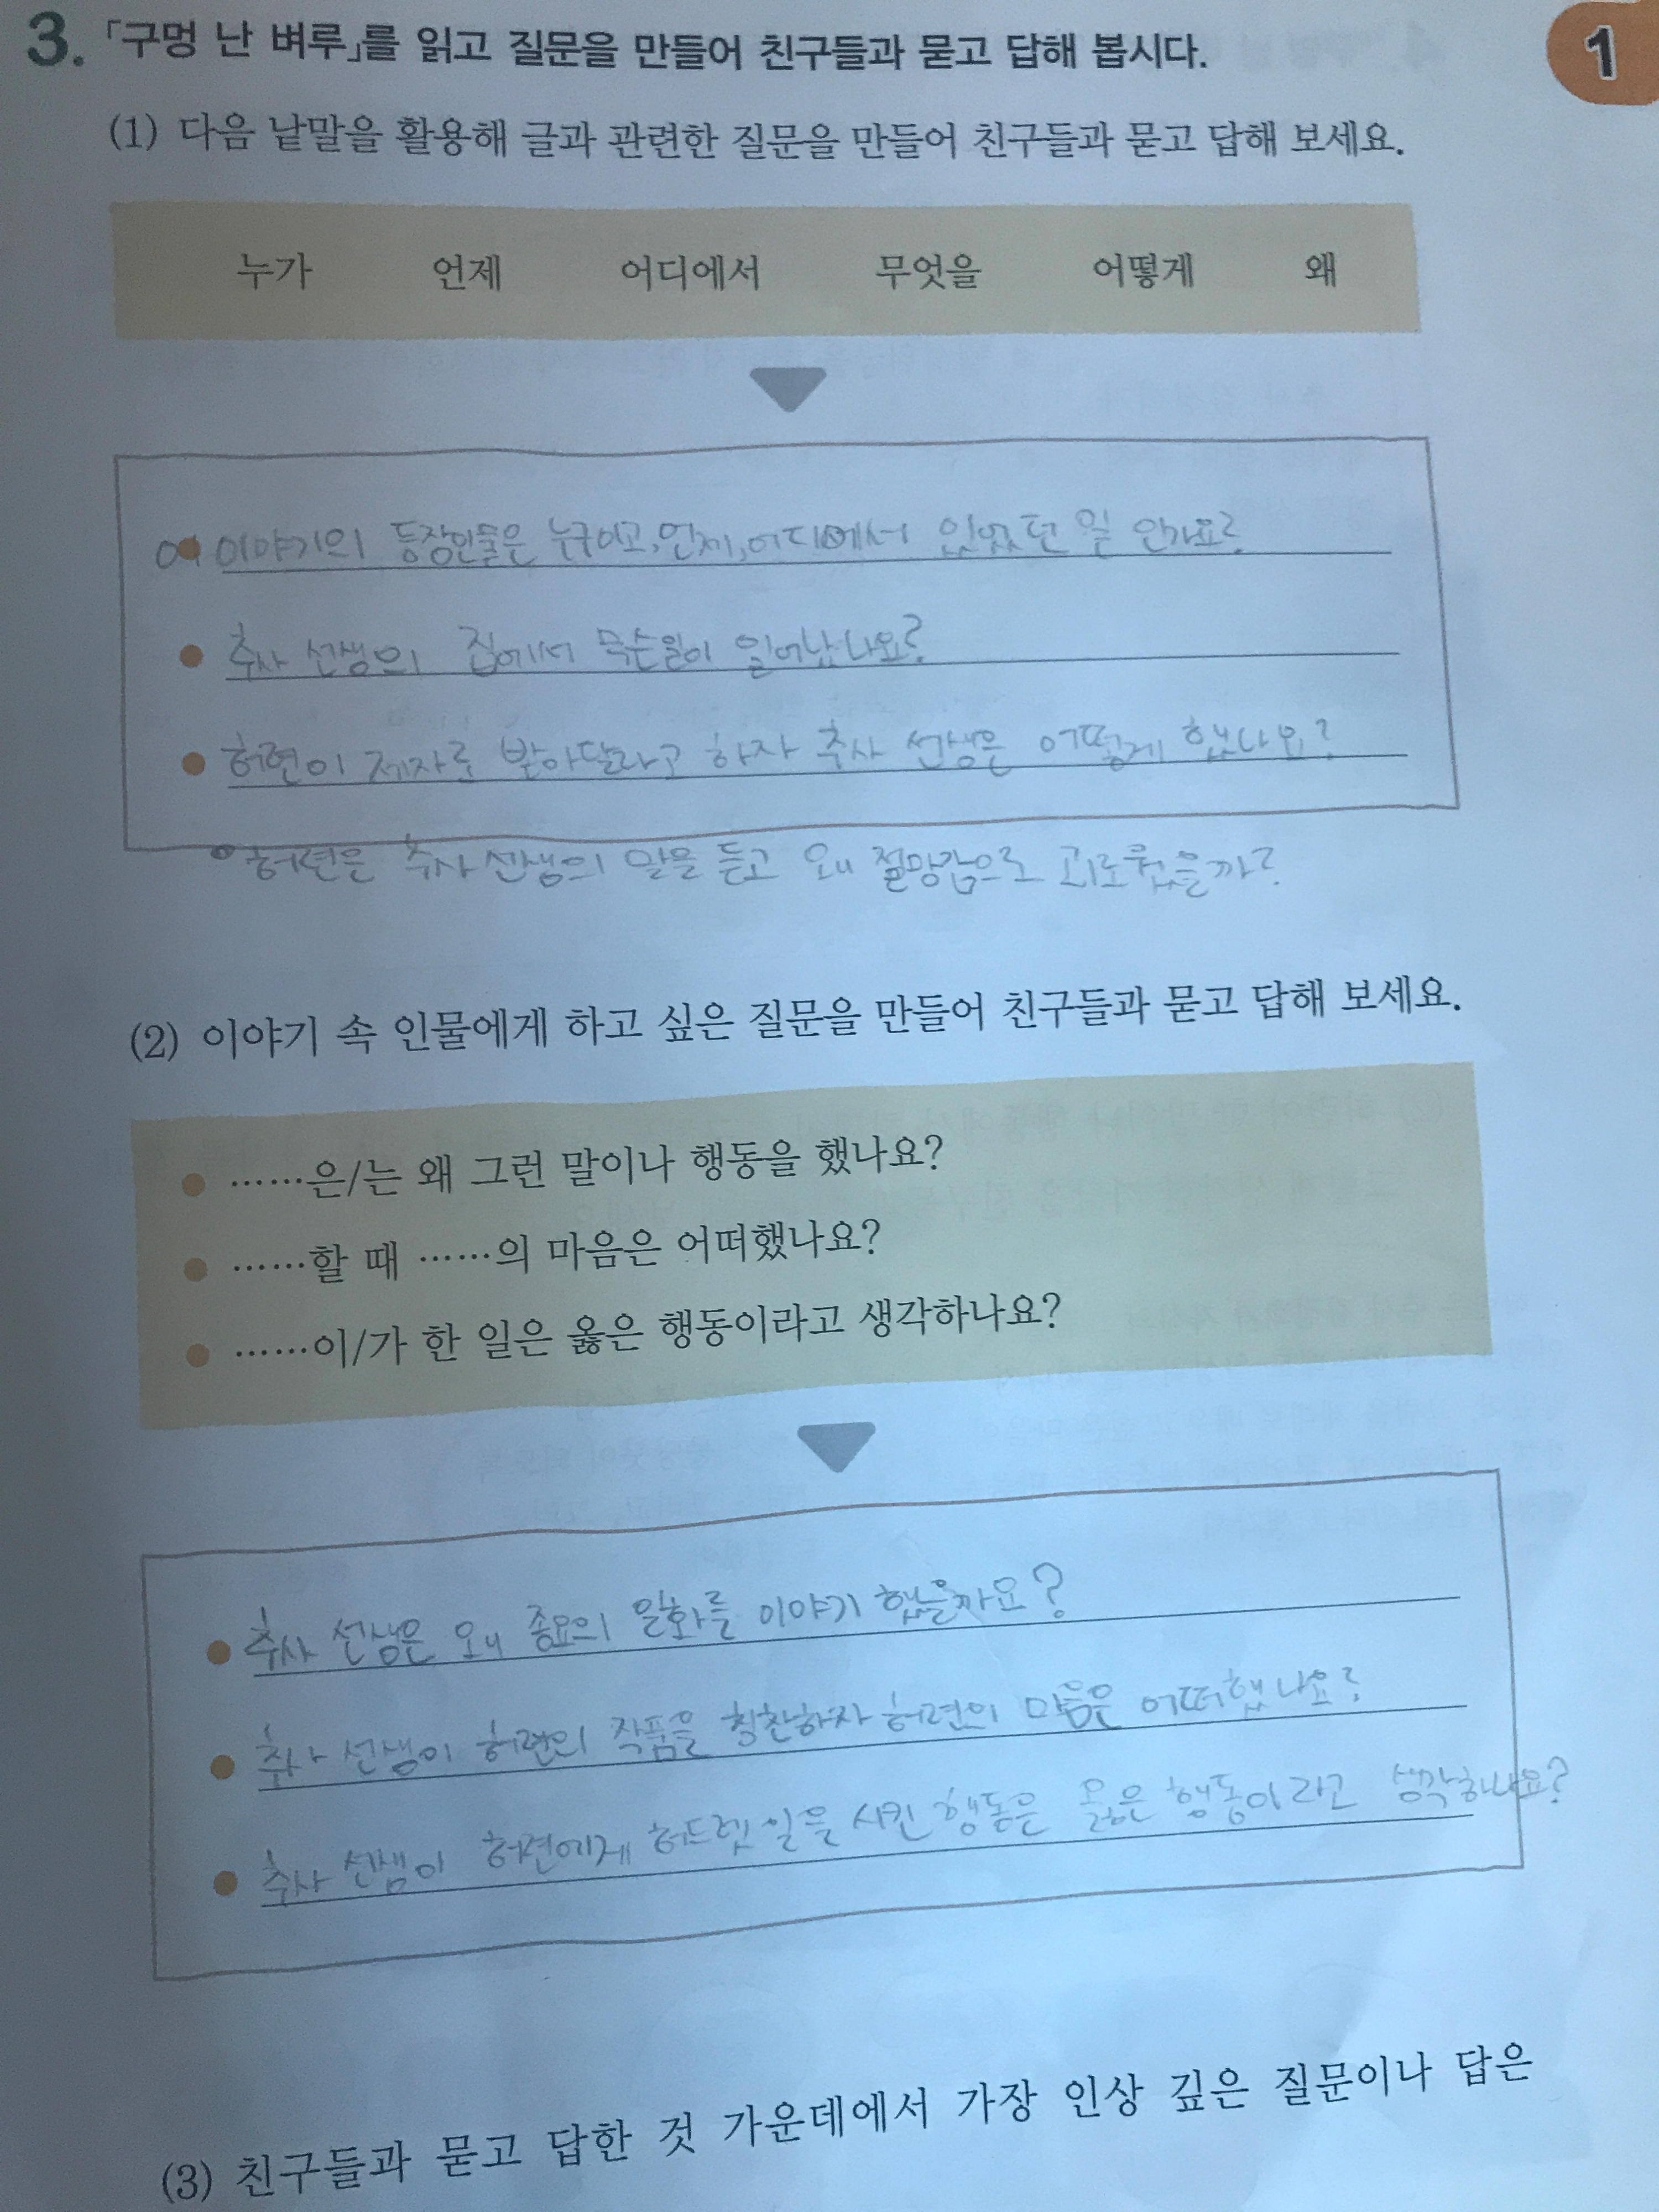 3. 「구멍 난 벼루」를 읽고 질문을 만들어 친구들과 묻고 답해 봅시다.
1
(1) 다음 낱말을 활용해 글과 관련한 질문을 만들어 친구들과 묻고 답해 보세요.
누가 언제 어디에서 무엇을 어떻게 왜
이야기의 등장인물은 누구이고, 언제, 어디에서 있었던 일 인가요?
● 추사 선생의 집에서 무슨일이 일어났나요?
● 허련이 제자로 받아달라고 하자 추사 선생은 어떻게 했나요?
허련은 추사 선생의 말을 듣고 왜 절망감으로 괴로웠을까?
(2) 이야기 속 인물에게 하고 싶은 질문을 만들어 친구들과 묻고 답해 보세요.
● ……은/는 왜 그런 말이나 행동을 했나요?
● ……할 때 ……의 마음은 어떠했나요?
● ……이/가 한 일은 옳은 행동이라고 생각하나요?
● 추사 선생은 왜 종요의 일화를 이야기 했을까요?
● 추사 선생이 허련의 작품을 칭찬하자 허련의 마음은 어떠했나요?
● 추사 선생이 허련에게 허드렛일을 시킨 행동은 옳은 행동이라고 생각하나요?
(3) 친구들과 묻고 답한 것 가운데에서 가장 인상 깊은 질문이나 답은